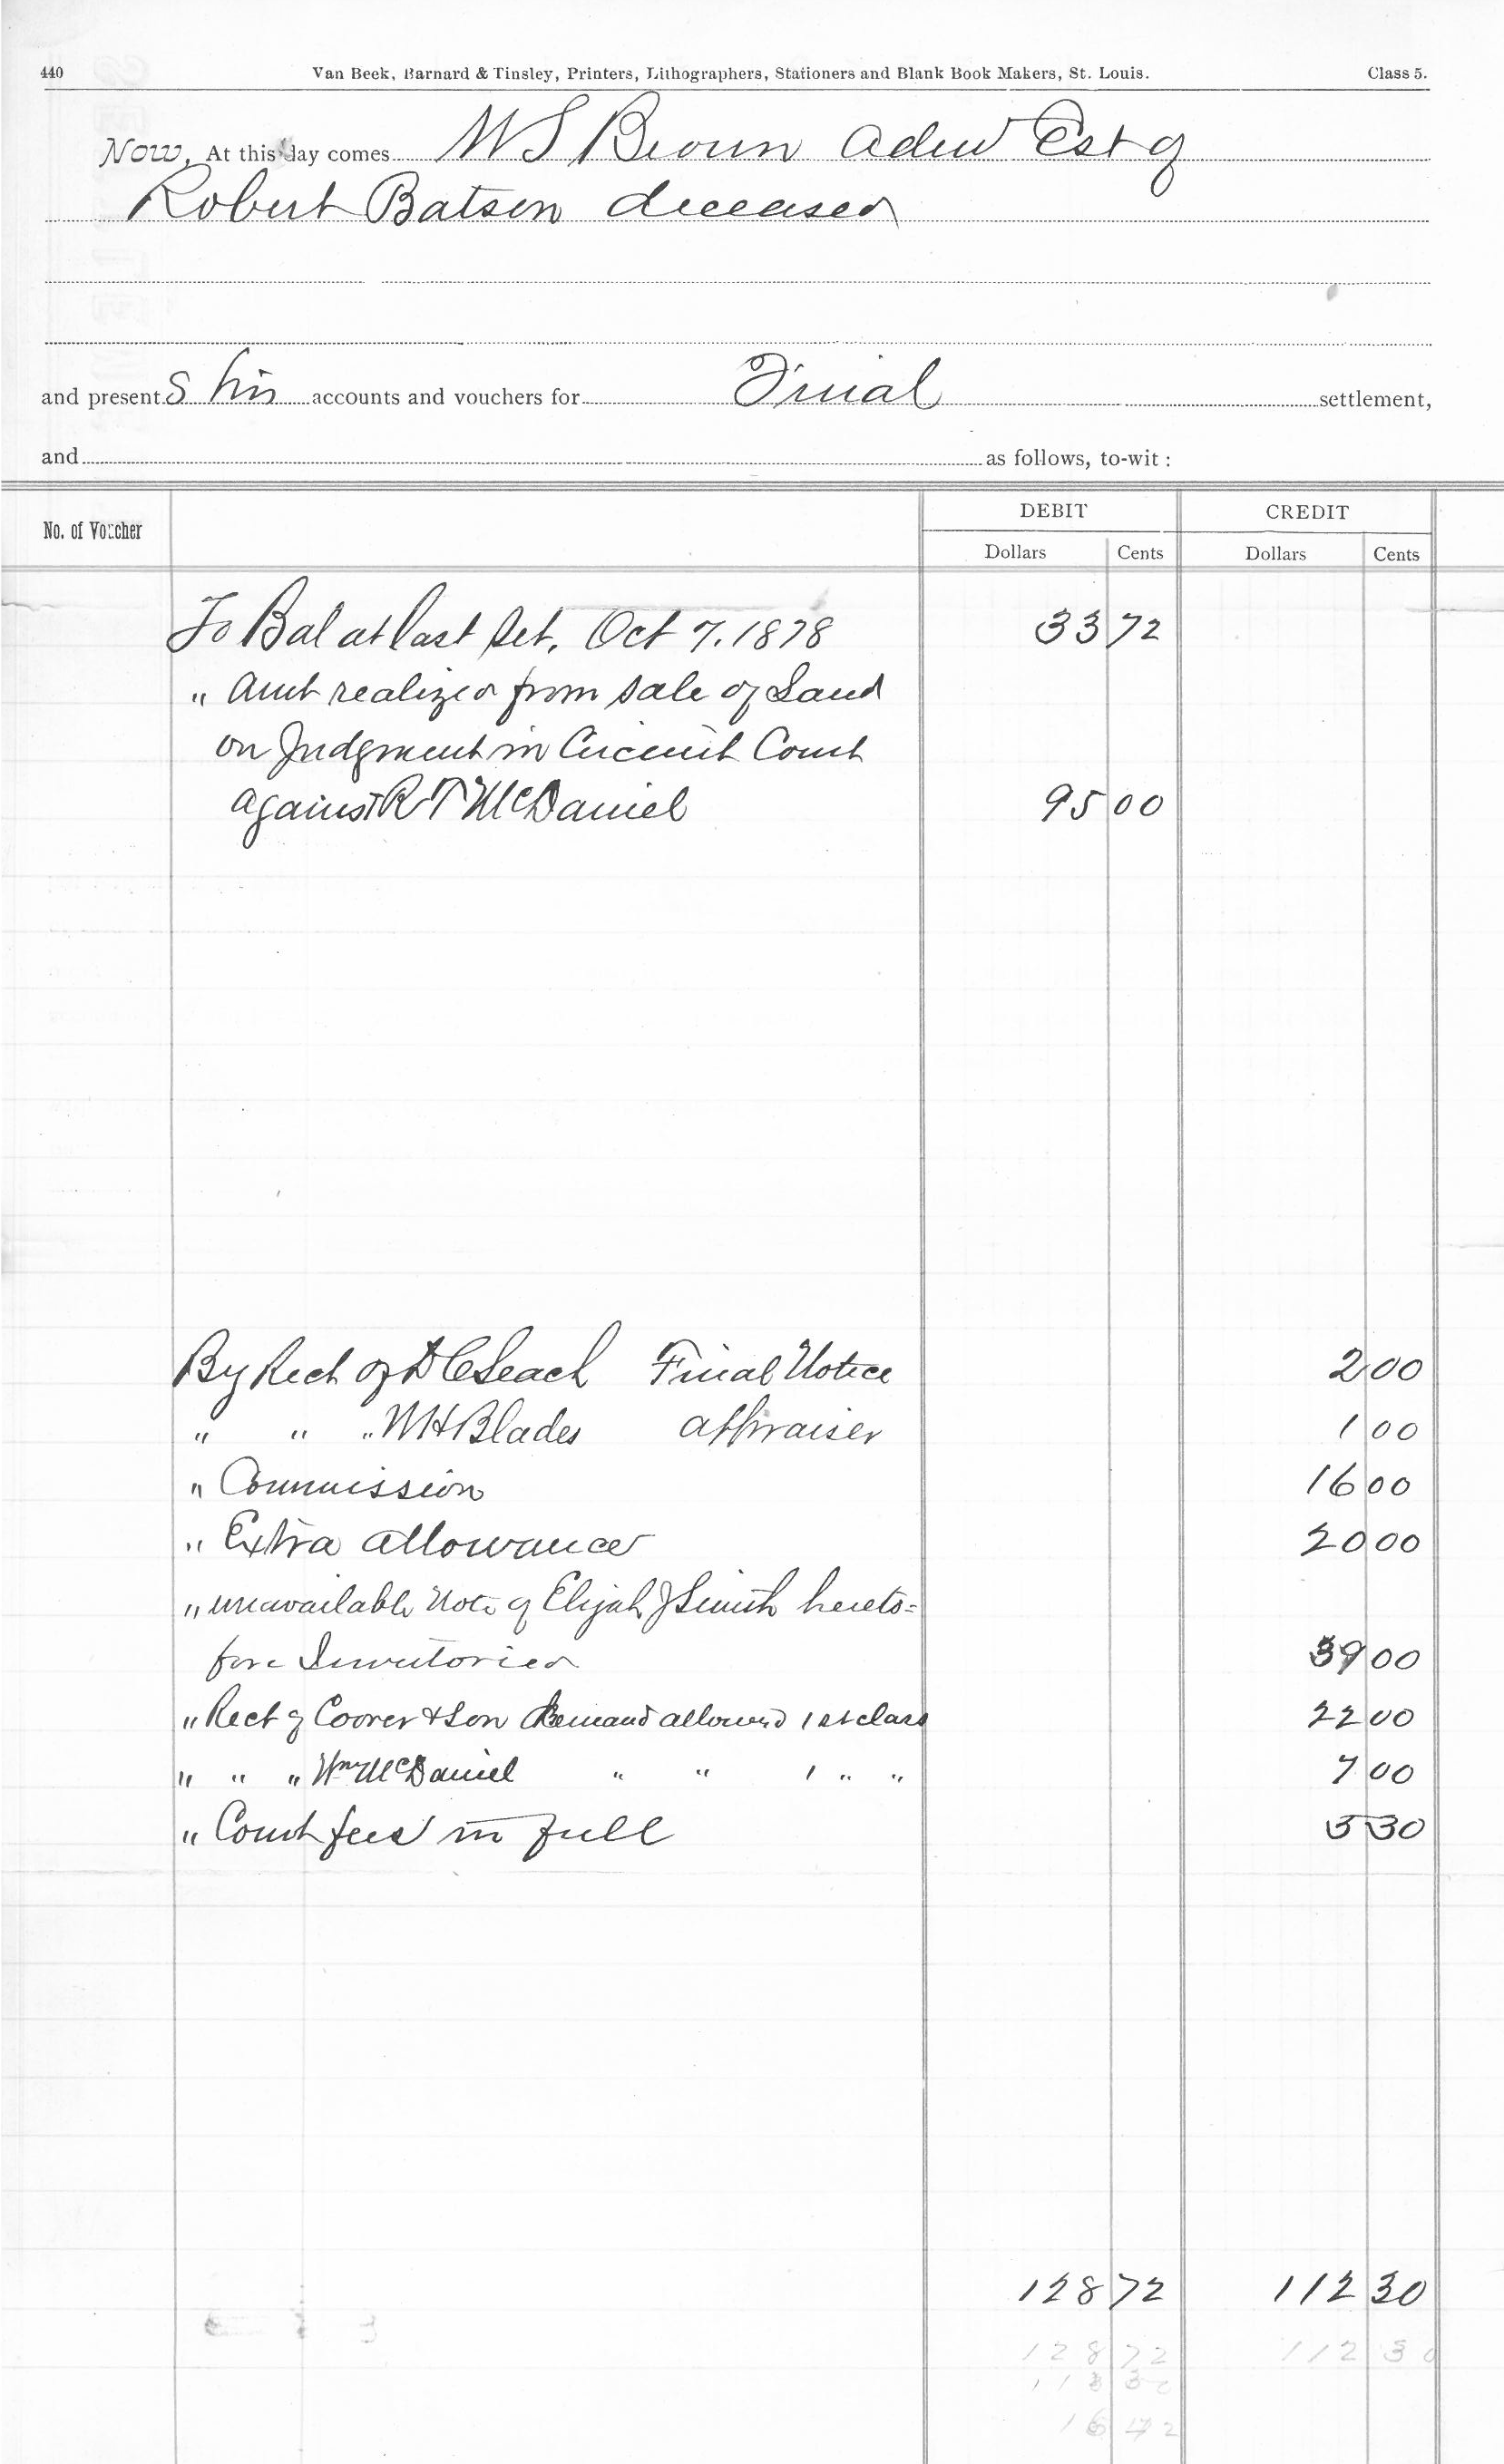 440 Van Beek, Barnard & Tinsley, Printers, Lithographers, Stationers and Blank Book Makers, St. Louis. Class 5.
Now, At this day comes W S Brown Adm Est of
Robert Batson deceased
and presents his accounts and vouchers for Final settlement,
and as follows, to-wit:
DEBIT CREDIT
No. of Voucher
Dollars Cents Dollars Cents
To Bal at last Set. Oct 7. 1878 33 72
" Amt realized from sale of Land
on Judgment in Circuit Court
against R T McDaniel 95 00
By Rect of D C Leach Final Notice 2 00
" " " W H Blades appraiser 1 00
" Commission 16 00
" Extra allowance 20 00
" unavailable Note of Elijah J Smith hereto=
fore Inventoried 39 00
" Rect of Coover & Son Demand allowed 1st class 22 00
" " " Wm McDaniel " " 1 " " 7 00
" Court fees in full 5 30
128 72 112 30
128 72 112 30
16 42